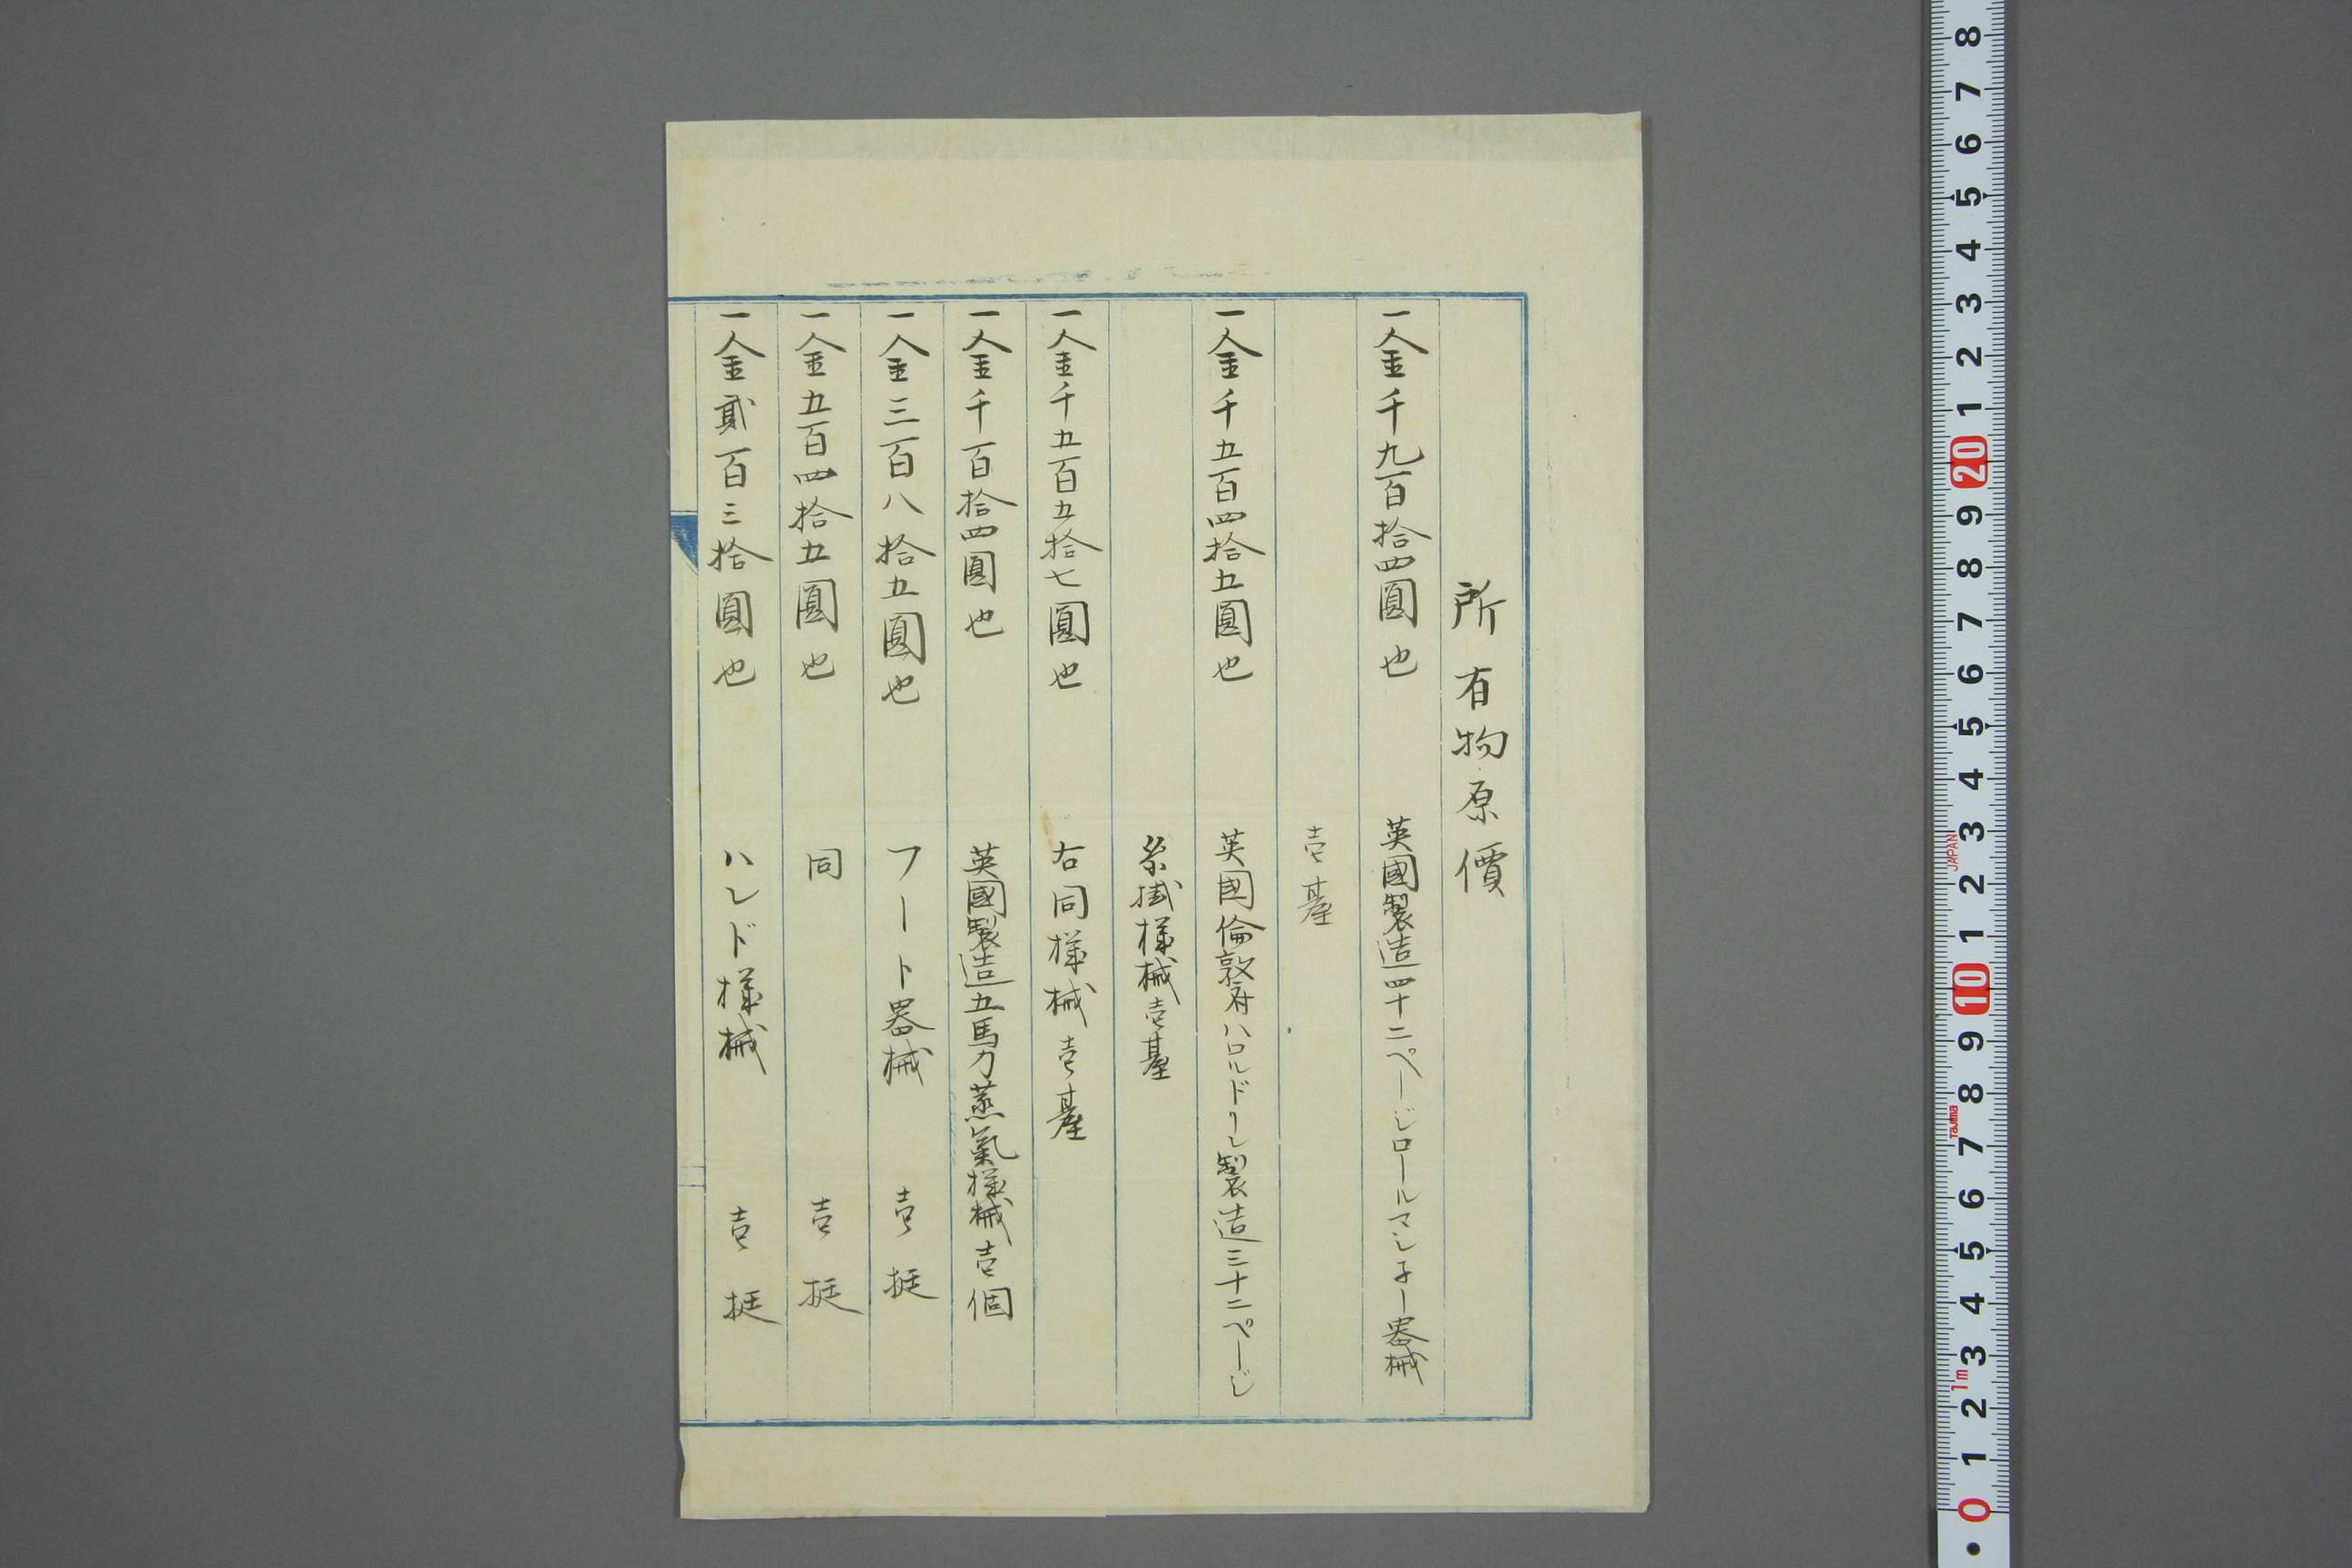 所有物原價
一金千九百拾四圓也 英國製造四十二ページロールマシ子ー器械
壱臺
一金千五百四拾五圓也 英國倫敦府ハロルドリレ製造三十二ページ
糸掛様械壱臺
一金千五百五拾七圓也 右同様械壱臺
一金千百拾四圓也 英國製造五馬力蒸氣様械壱個
一金三百八拾五圓也 フート器械 壱挺
一金五百四拾五圓也 同 壱挺
一金貳百三拾圓也 ハンド様械 壱挺
8 7 6 5 4 3 2 1 20 9 8 7 6 5 4 3 2 1 10 9 8 7 6 5 4 3 2 1 0
JAPAN
Tajima
1m